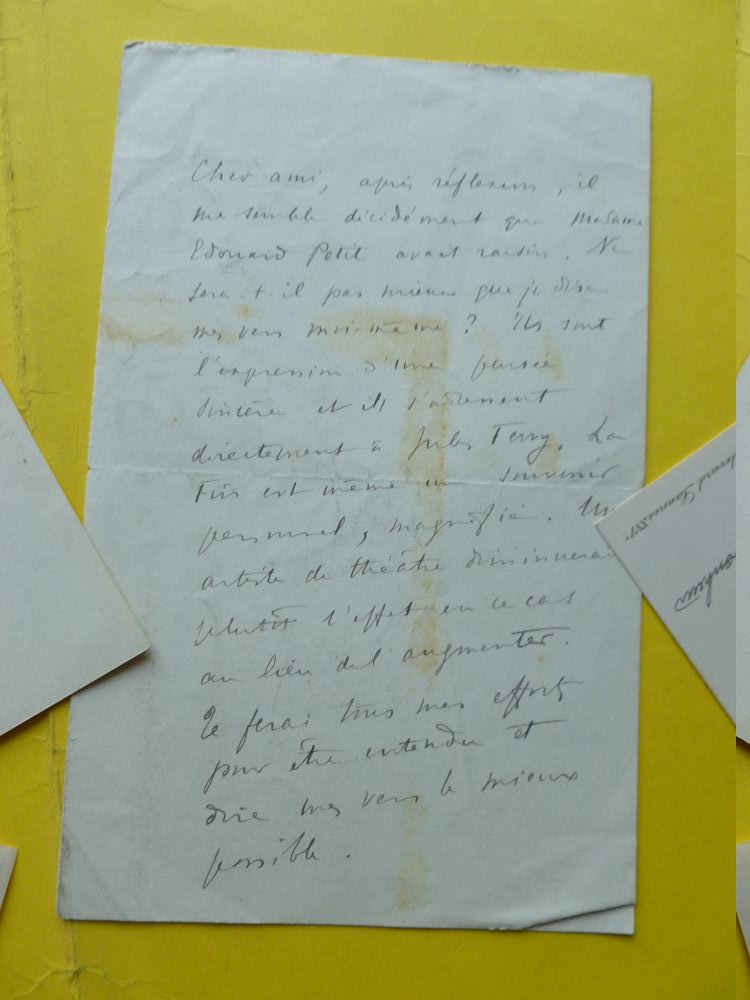 Cher ami, après réflexion, il
me semble décidément que Madame
Edouard Petit avait raison. Ne
sera-t-il pas mieux que je dise
mes vers moi-même ? Ils sont
l'expression d'une pensée
sincère et ils s'adressent
directement à Jules Ferry. La
Fin est même un souvenir
personnel, magnifié. Un
artiste de théâtre diminuerai
plutôt l'effet en ce cas
au lieu de l'augmenter.
Je ferai tous mes efforts
pour être entendu et
dire mes vers le mieux
possible.